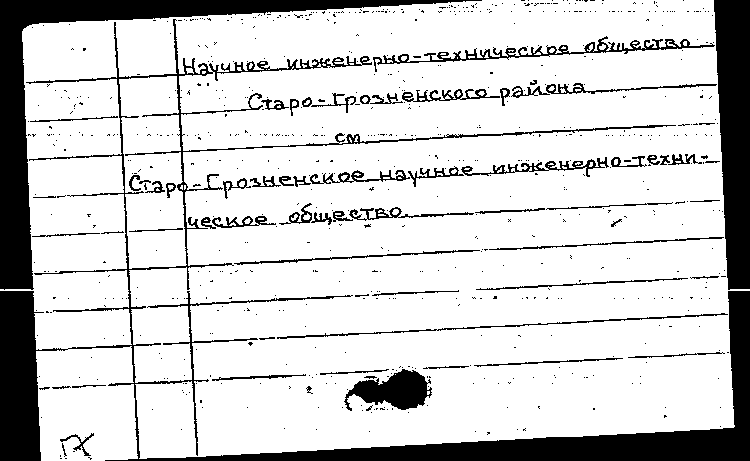 Научное инженерно-техническое общество
Старо-Грозненского района
см
Старо-Грозненское научное инженерно-техни-
ческое общество.